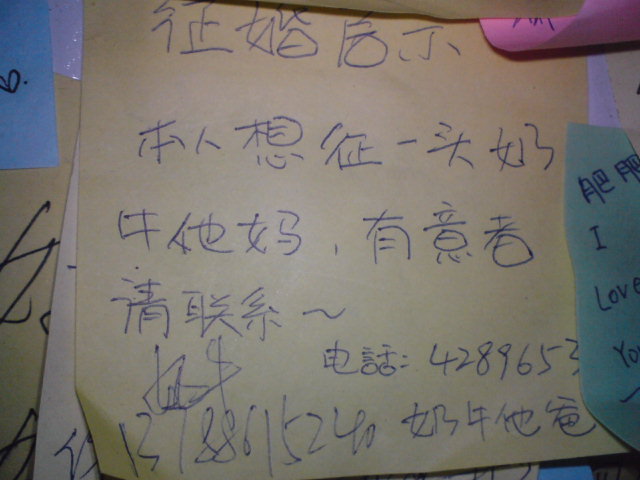 征婚启示
本人想征一头奶
牛他妈,有意者
请联系~
电話: 4289653
13788615240 奶牛他爸
肥肥
I
Love
You